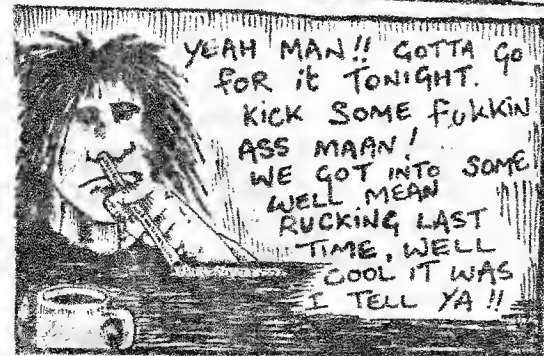 YEAH MAN!! GOTTA GO
FOR it TONIGHT.
KICK SOME FUKKIN
ASS MAAN!
WE GOT INTO SOME
WELL MEAN
RUCKING LAST
TIME, WELL
COOL IT WAS
I TELL YA!!